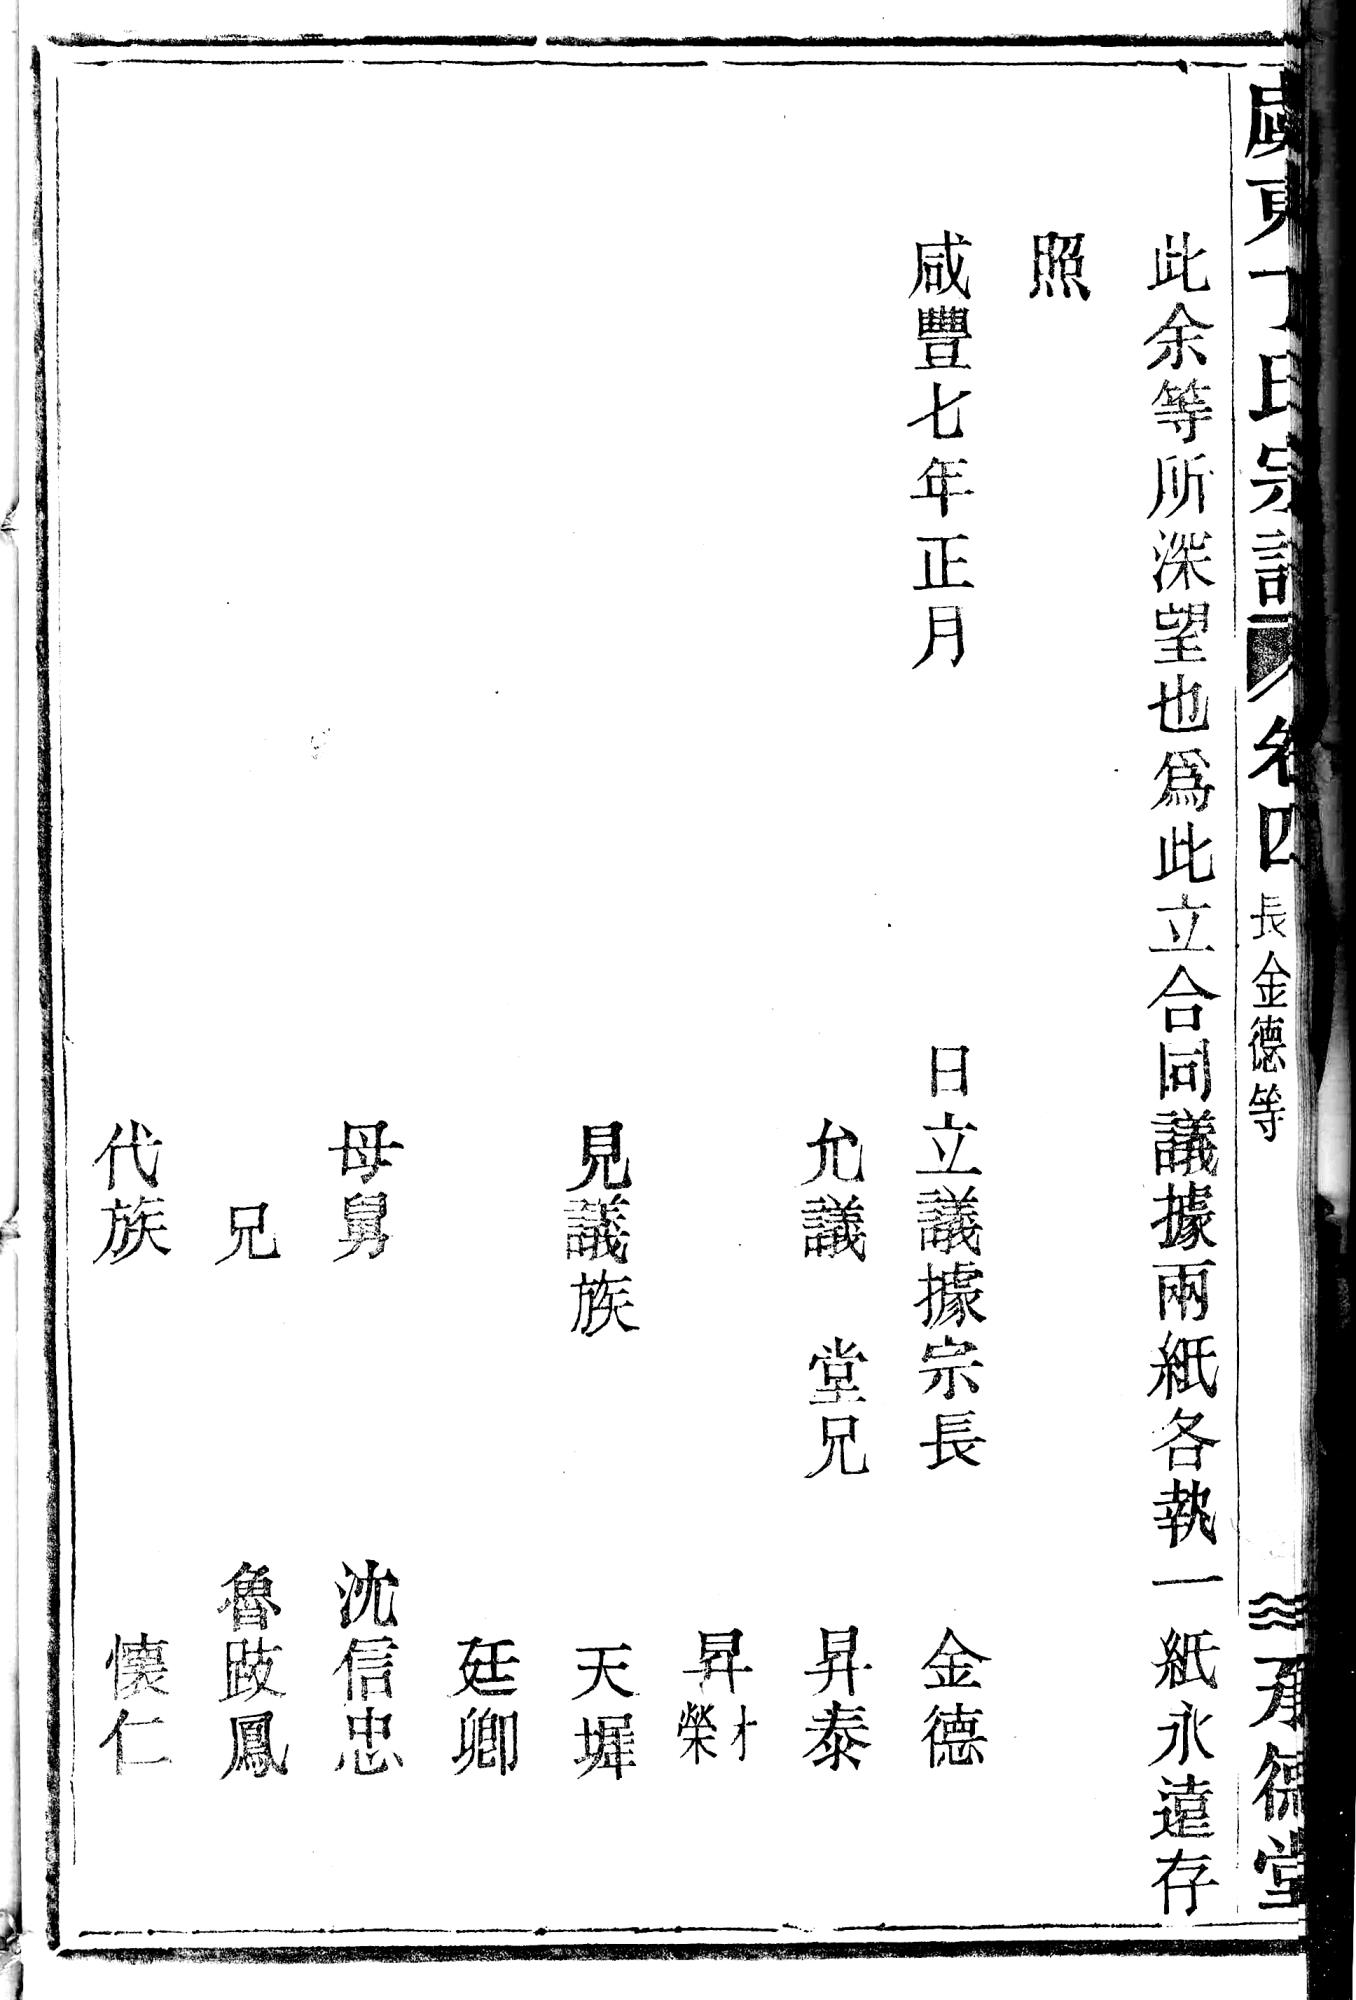 氏宗譜 卷四 長金德等 承德堂
此余等所深望也爲此立合同議據兩紙各執一紙永遠存
照
咸豐七年正月 日立議據宗長 金德
允議 堂兄 昇泰
昇才榮
見議族 天墀
廷卿
母舅 沈信忠
兄 魯歧鳳
代族 懷仁